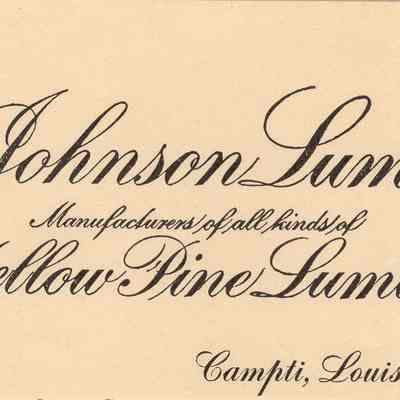 Johnson Lum
Manufacturers of all kinds of
ellow Pine Lum
Campti, Louis